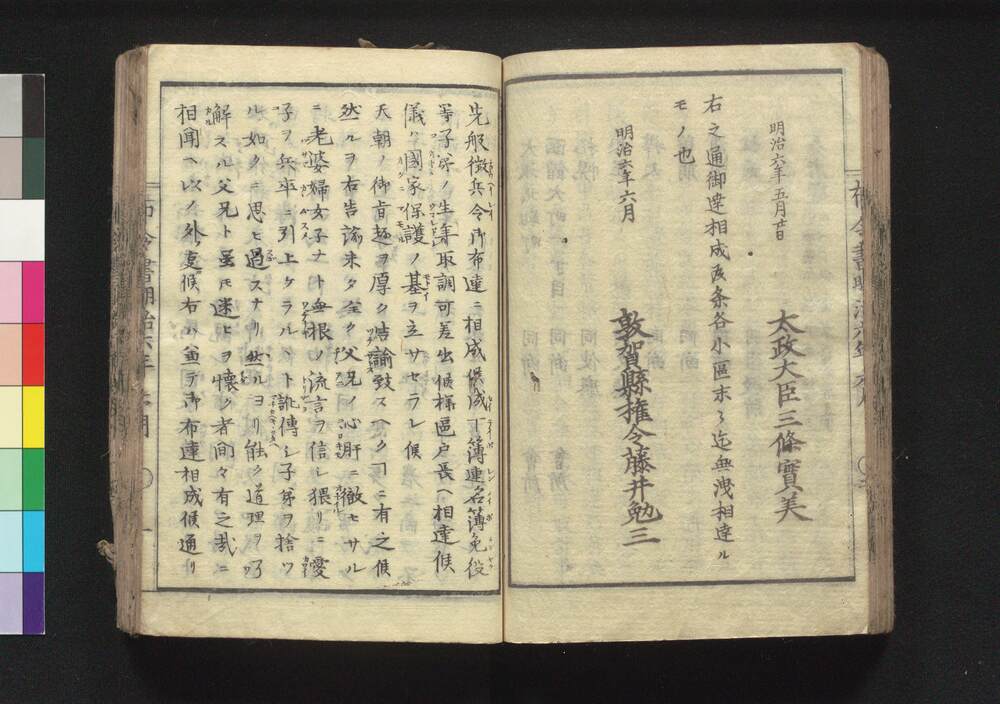 明治六年五月廿日
太政大臣三條實美
右之通御達相成候条各小區末々迄無洩相達ル
モノ也
明治六年六月
敦賀縣権令藤井勉三
先般徴兵令御布達ニ相成候成丁簿連名簿免役
等子弟ノ生年取調可差出候様邑戸長ヘ相達候
儀ハ國家保護ノ基ヲ立サセラレ候
天朝ノ御旨趣ヲ厚ク告諭致スクヿニ有之候
然ルヲ右告諭未タ全ク父兄ノ心肝ニ徹セサル
ニ老婆婦女子ナト無根ノ流言ヲ信シ猥リニ愛
子ヲ兵卒ニ引上ケラルヽト訛傳シ子弟ヲ捨ツ
ル如クニ思ヒ過スナリ然ルヨリ能ク道理ヲ
解スル父兄ト雖モ迷ヒヲ懐ク者間々有之哉ニ
相聞ヘ以ノ外ノ事候右ハ兼テ御布達相成候通リ
布令書明治六年 六月